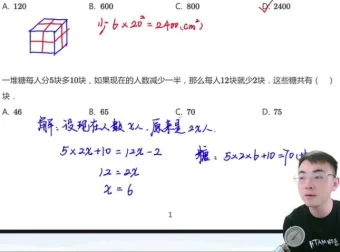 A. 120 B. 600 C. 800 D. 2400
6×20²=2400(cm²)
一堆糖每人分5块多10块，如果现在的人数减少一半，那么每人12块就少2块．这些糖共有（ ）
块．
A. 46 B. 65 C. 70 D. 75
解：设现在人数x人．原来是2x人．
5×2x+10=12x-2
糖：5×2×6+10=70
12=2x
x=6
1